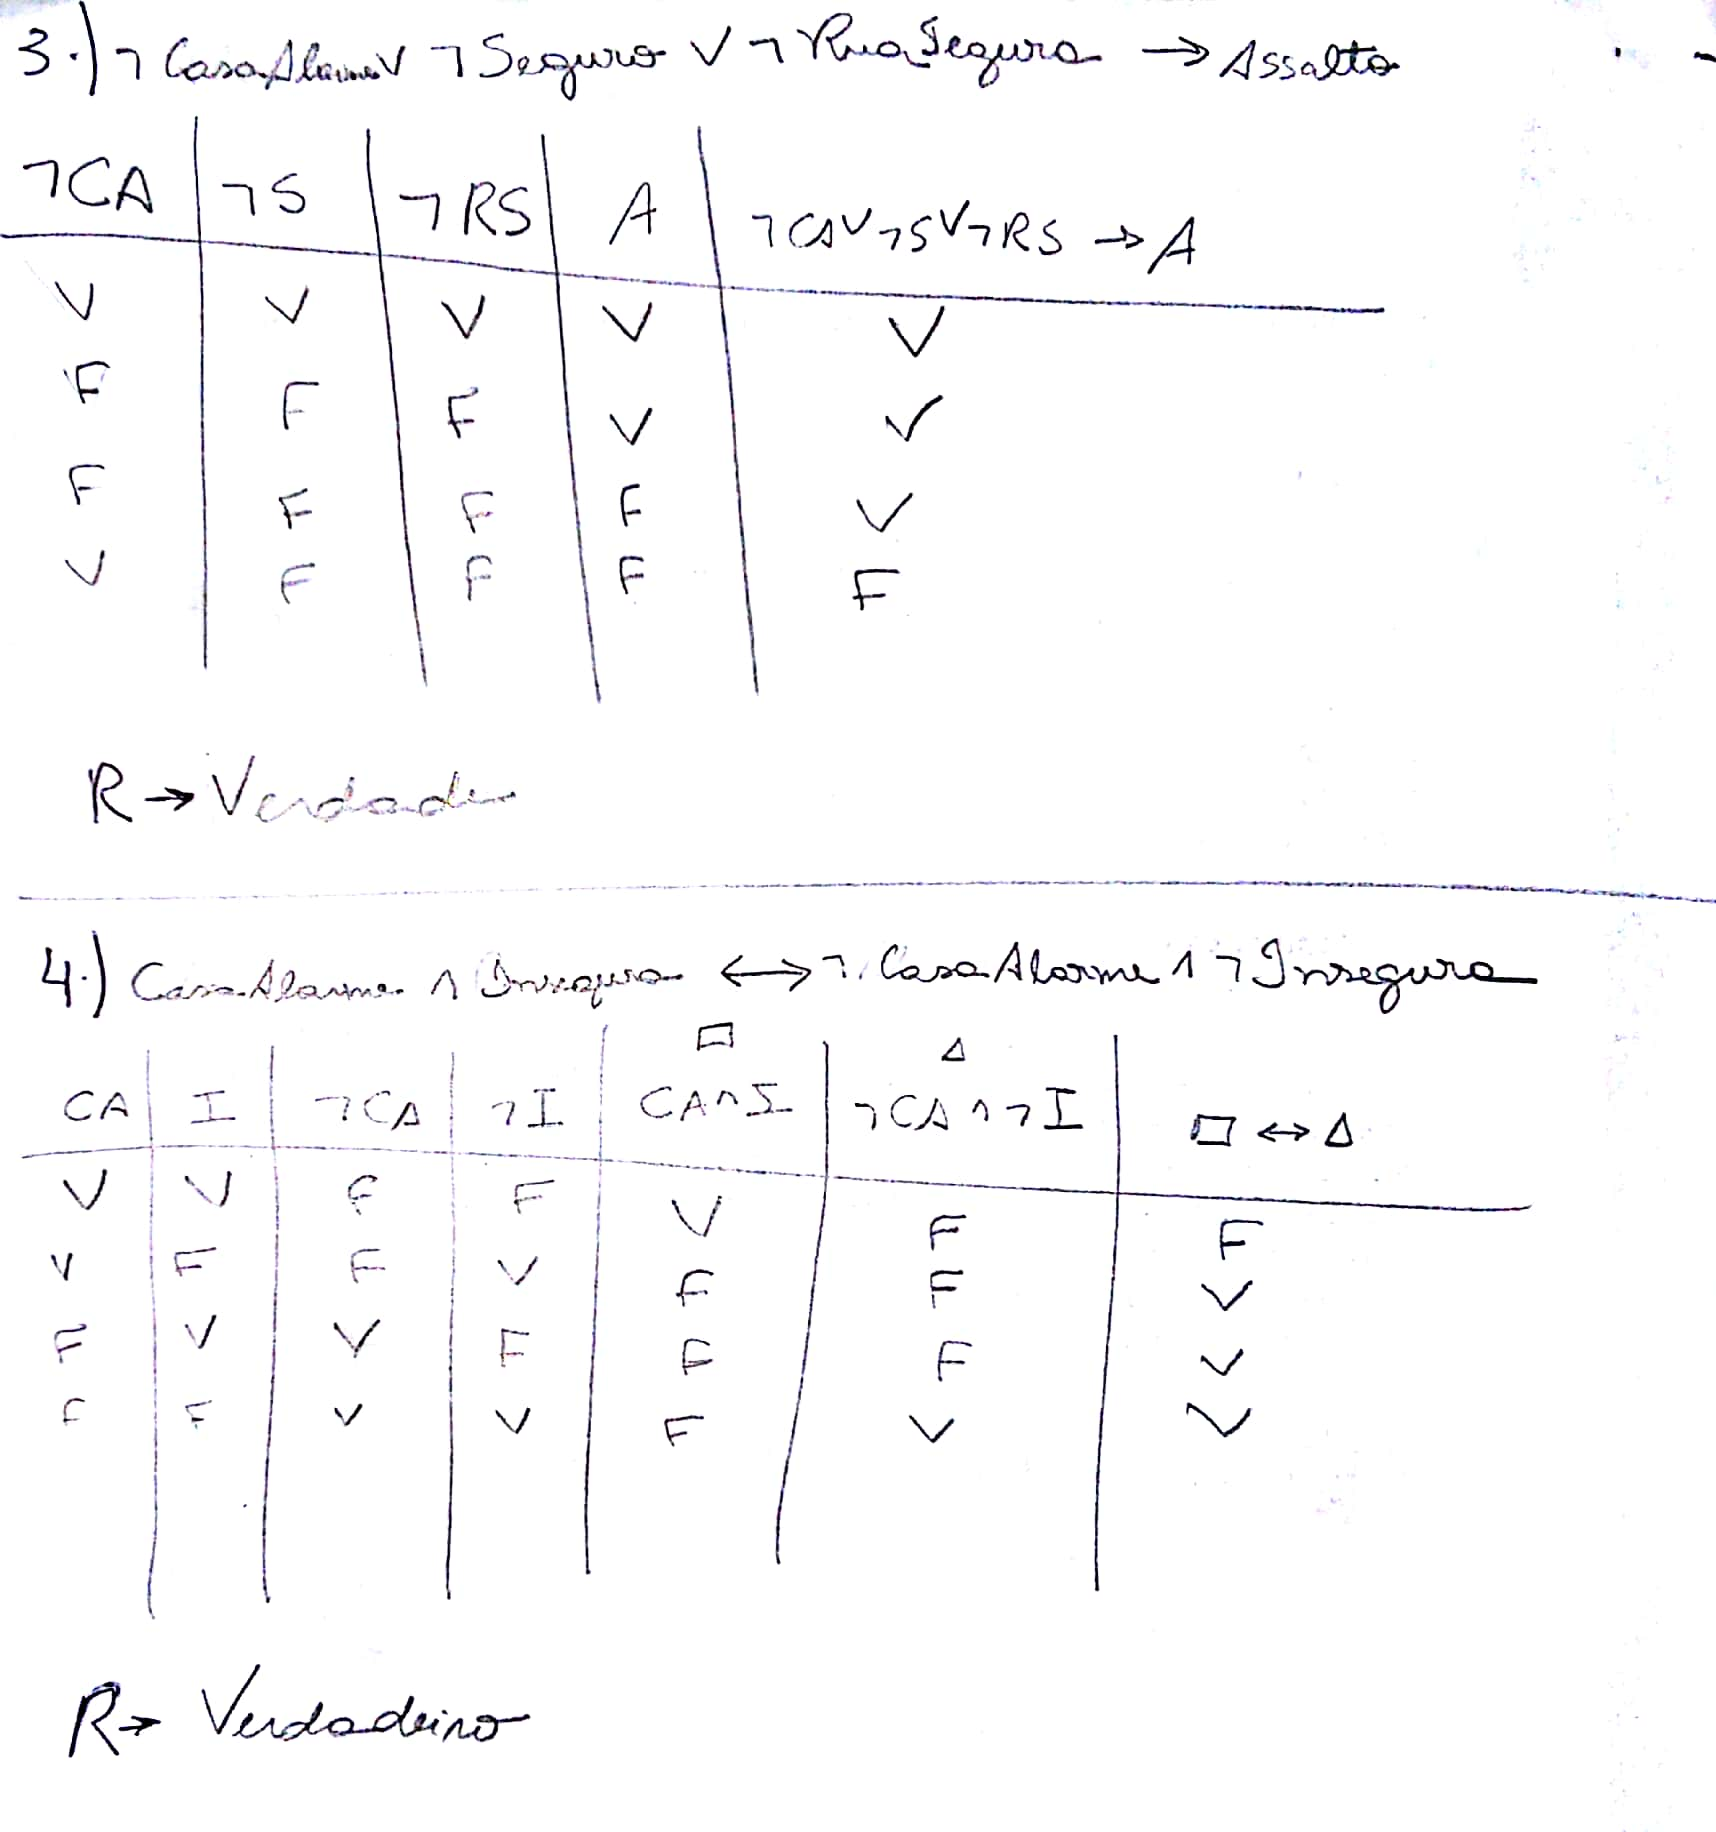 3.) ¬CasaAlarme V ¬Seguro V ¬RuaSegura → Assalto
¬CA ¬S ¬RS A ¬CA V ¬S V ¬RS → A
V V V V V
F F F V V
F F F F V
V F F F F
R → Verdade
4.) CasaAlarme ∧ Insegura ↔ ¬CasaAlarme ∧ ¬Insegura
□ △
CA I ¬CA ¬I CA∧I ¬CA∧¬I □ ↔ △
V V F F V F F
V F F V F F V
F V V F F F V
F F V V F V V
R → Verdadeiro